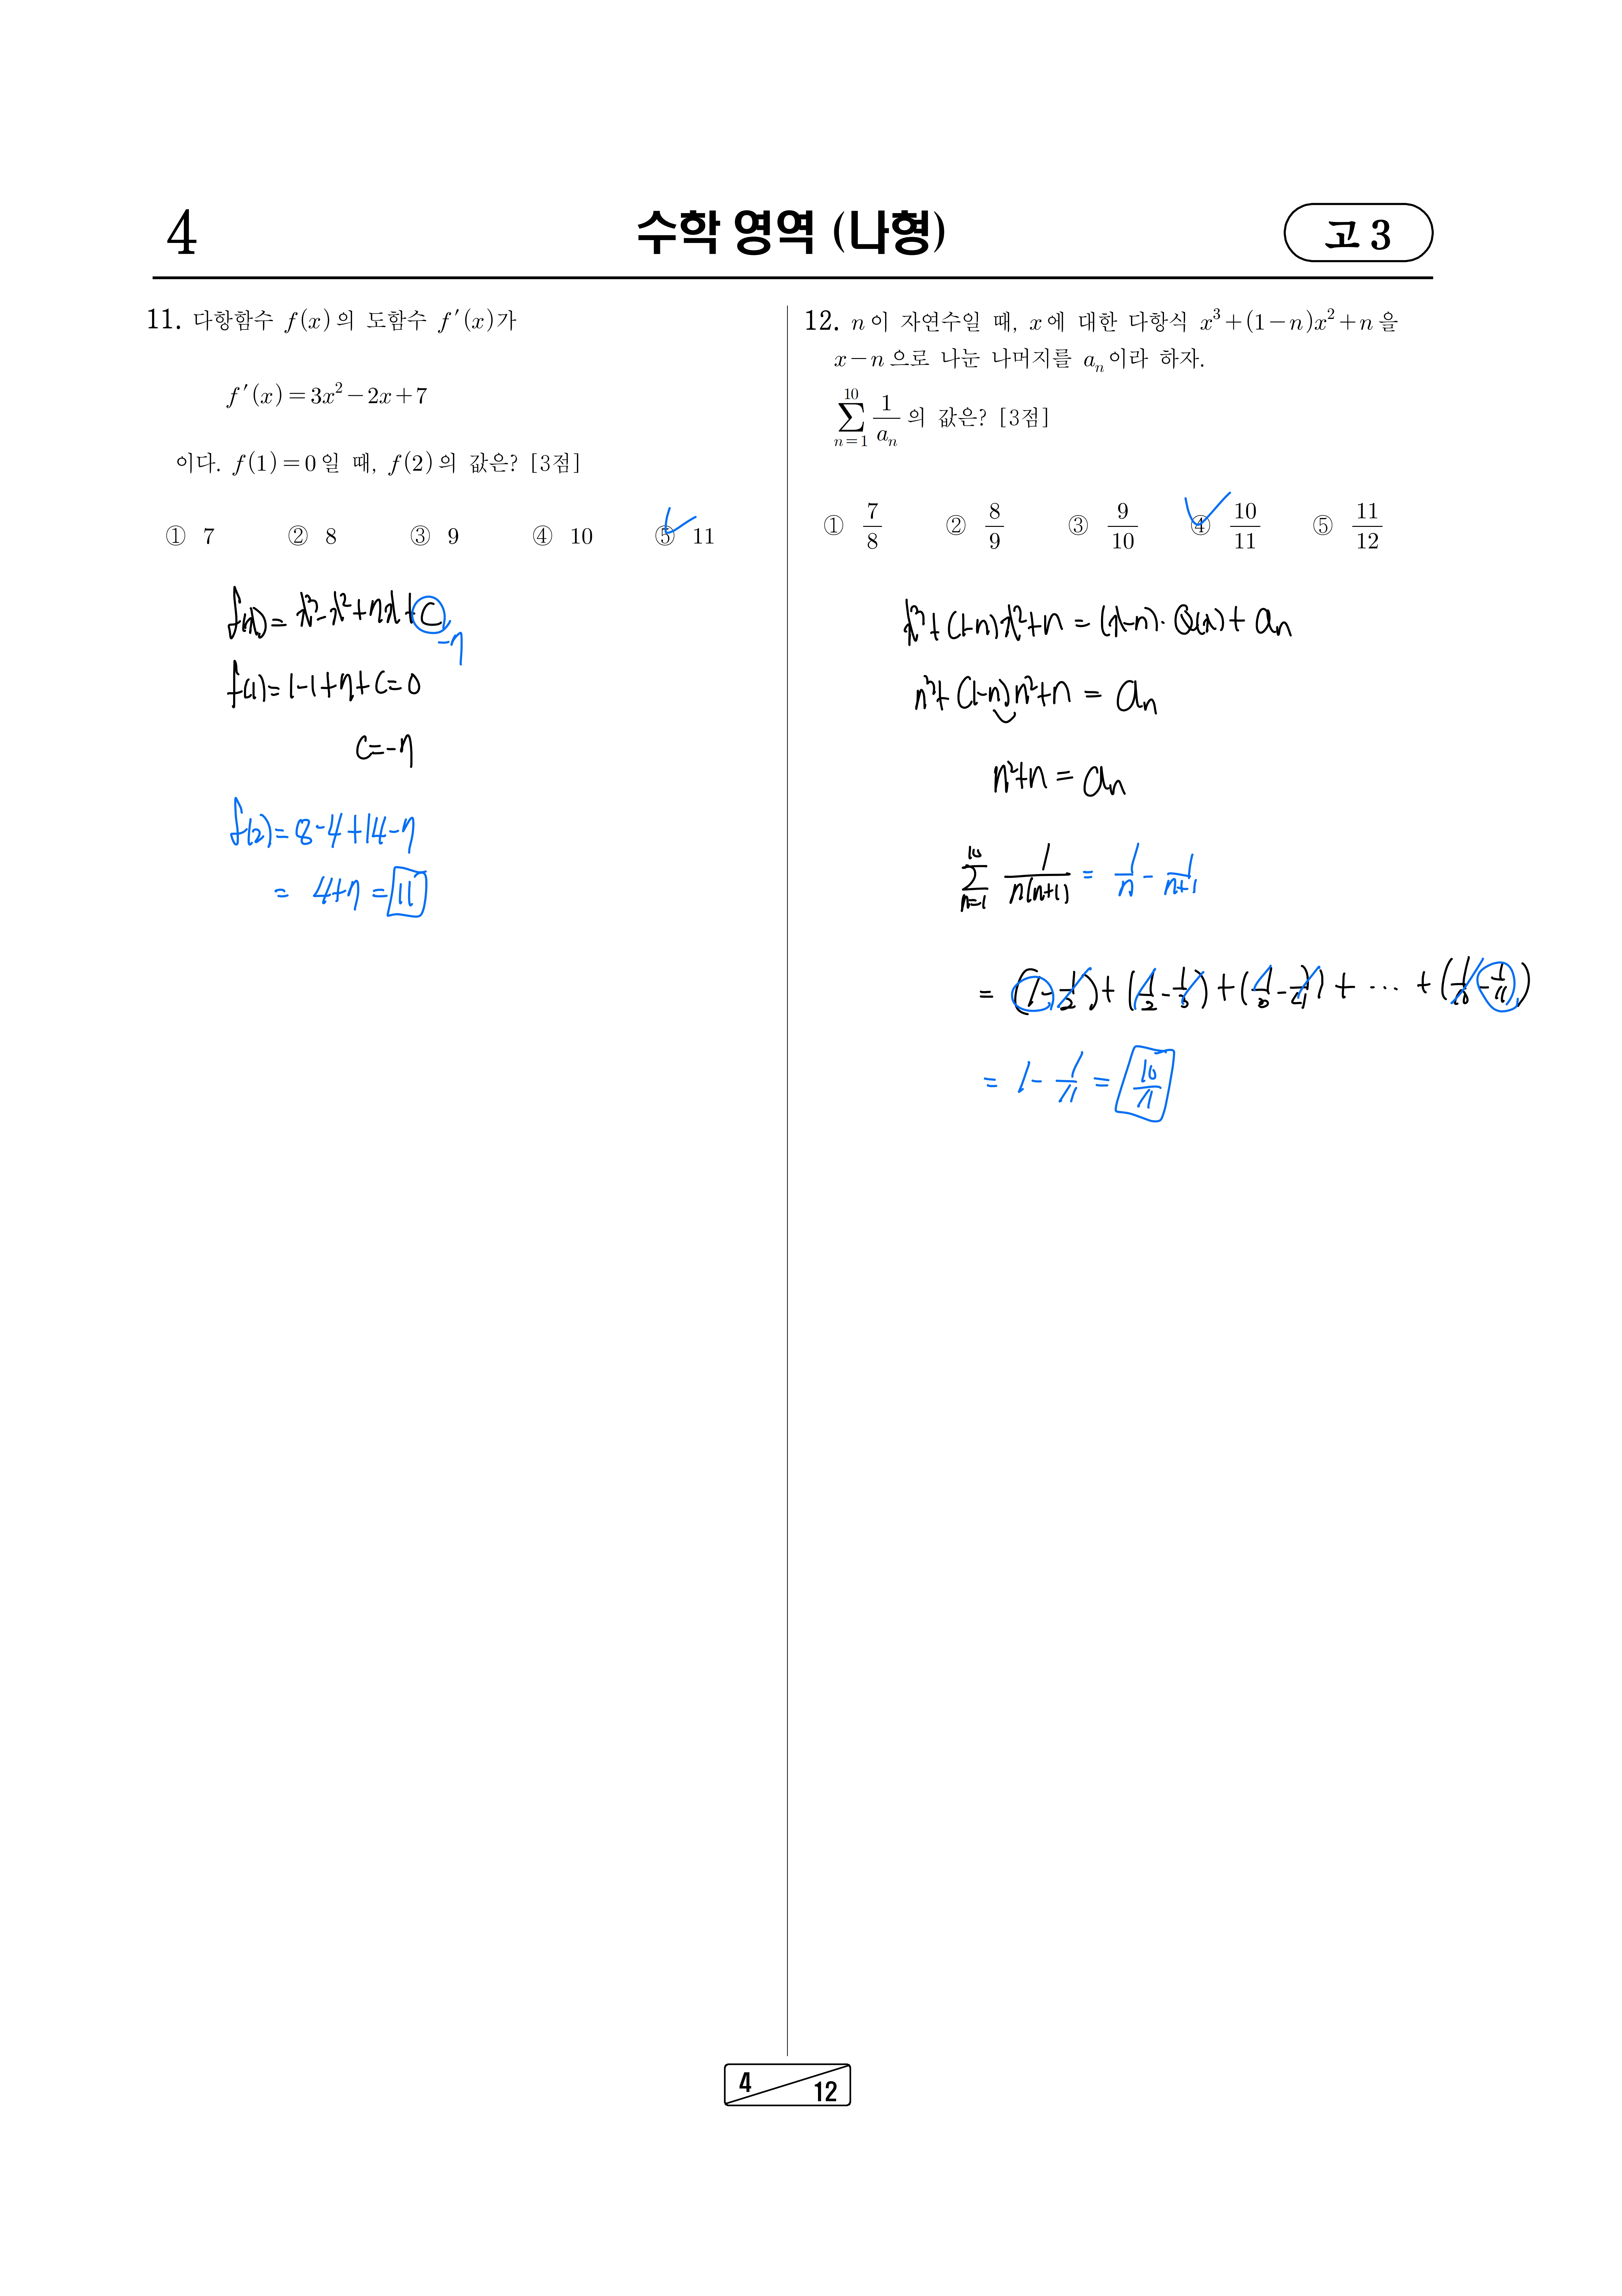 4
수학 영역 (나형)
고 3
11. 다항함수 f(x)의 도함수 f′(x)가
f′(x)=3x²−2x+7
이다. f(1)=0일 때, f(2)의 값은? [3점]
① 7 ② 8 ③ 9 ④ 10 ⑤ 11
f(x)= x³-x²+7x+C
-7
f(1)=1-1+7+C=0
C=-7
f(2)=8-4+14-7
= 4+7 = 11
12. n이 자연수일 때, x에 대한 다항식 x³+(1−n)x²+n을
x−n으로 나눈 나머지를 aₙ이라 하자.
∑_{n=1}^{10} 1/aₙ 의 값은? [3점]
① 7/8 ② 8/9 ③ 9/10 ④ 10/11 ⑤ 11/12
x³+(1-n)x²+n = (x-n)·Q(x)+aₙ
n³+(1-n)n²+n = aₙ
n²+n = aₙ
∑_{n=1}^{10} 1/n(n+1) = 1/n - 1/n+1
= (1-1/2)+(1/2-1/3)+(1/3-1/4)+ ⋯ +(1/10-1/11)
= 1- 1/11 = 10/11
4
12